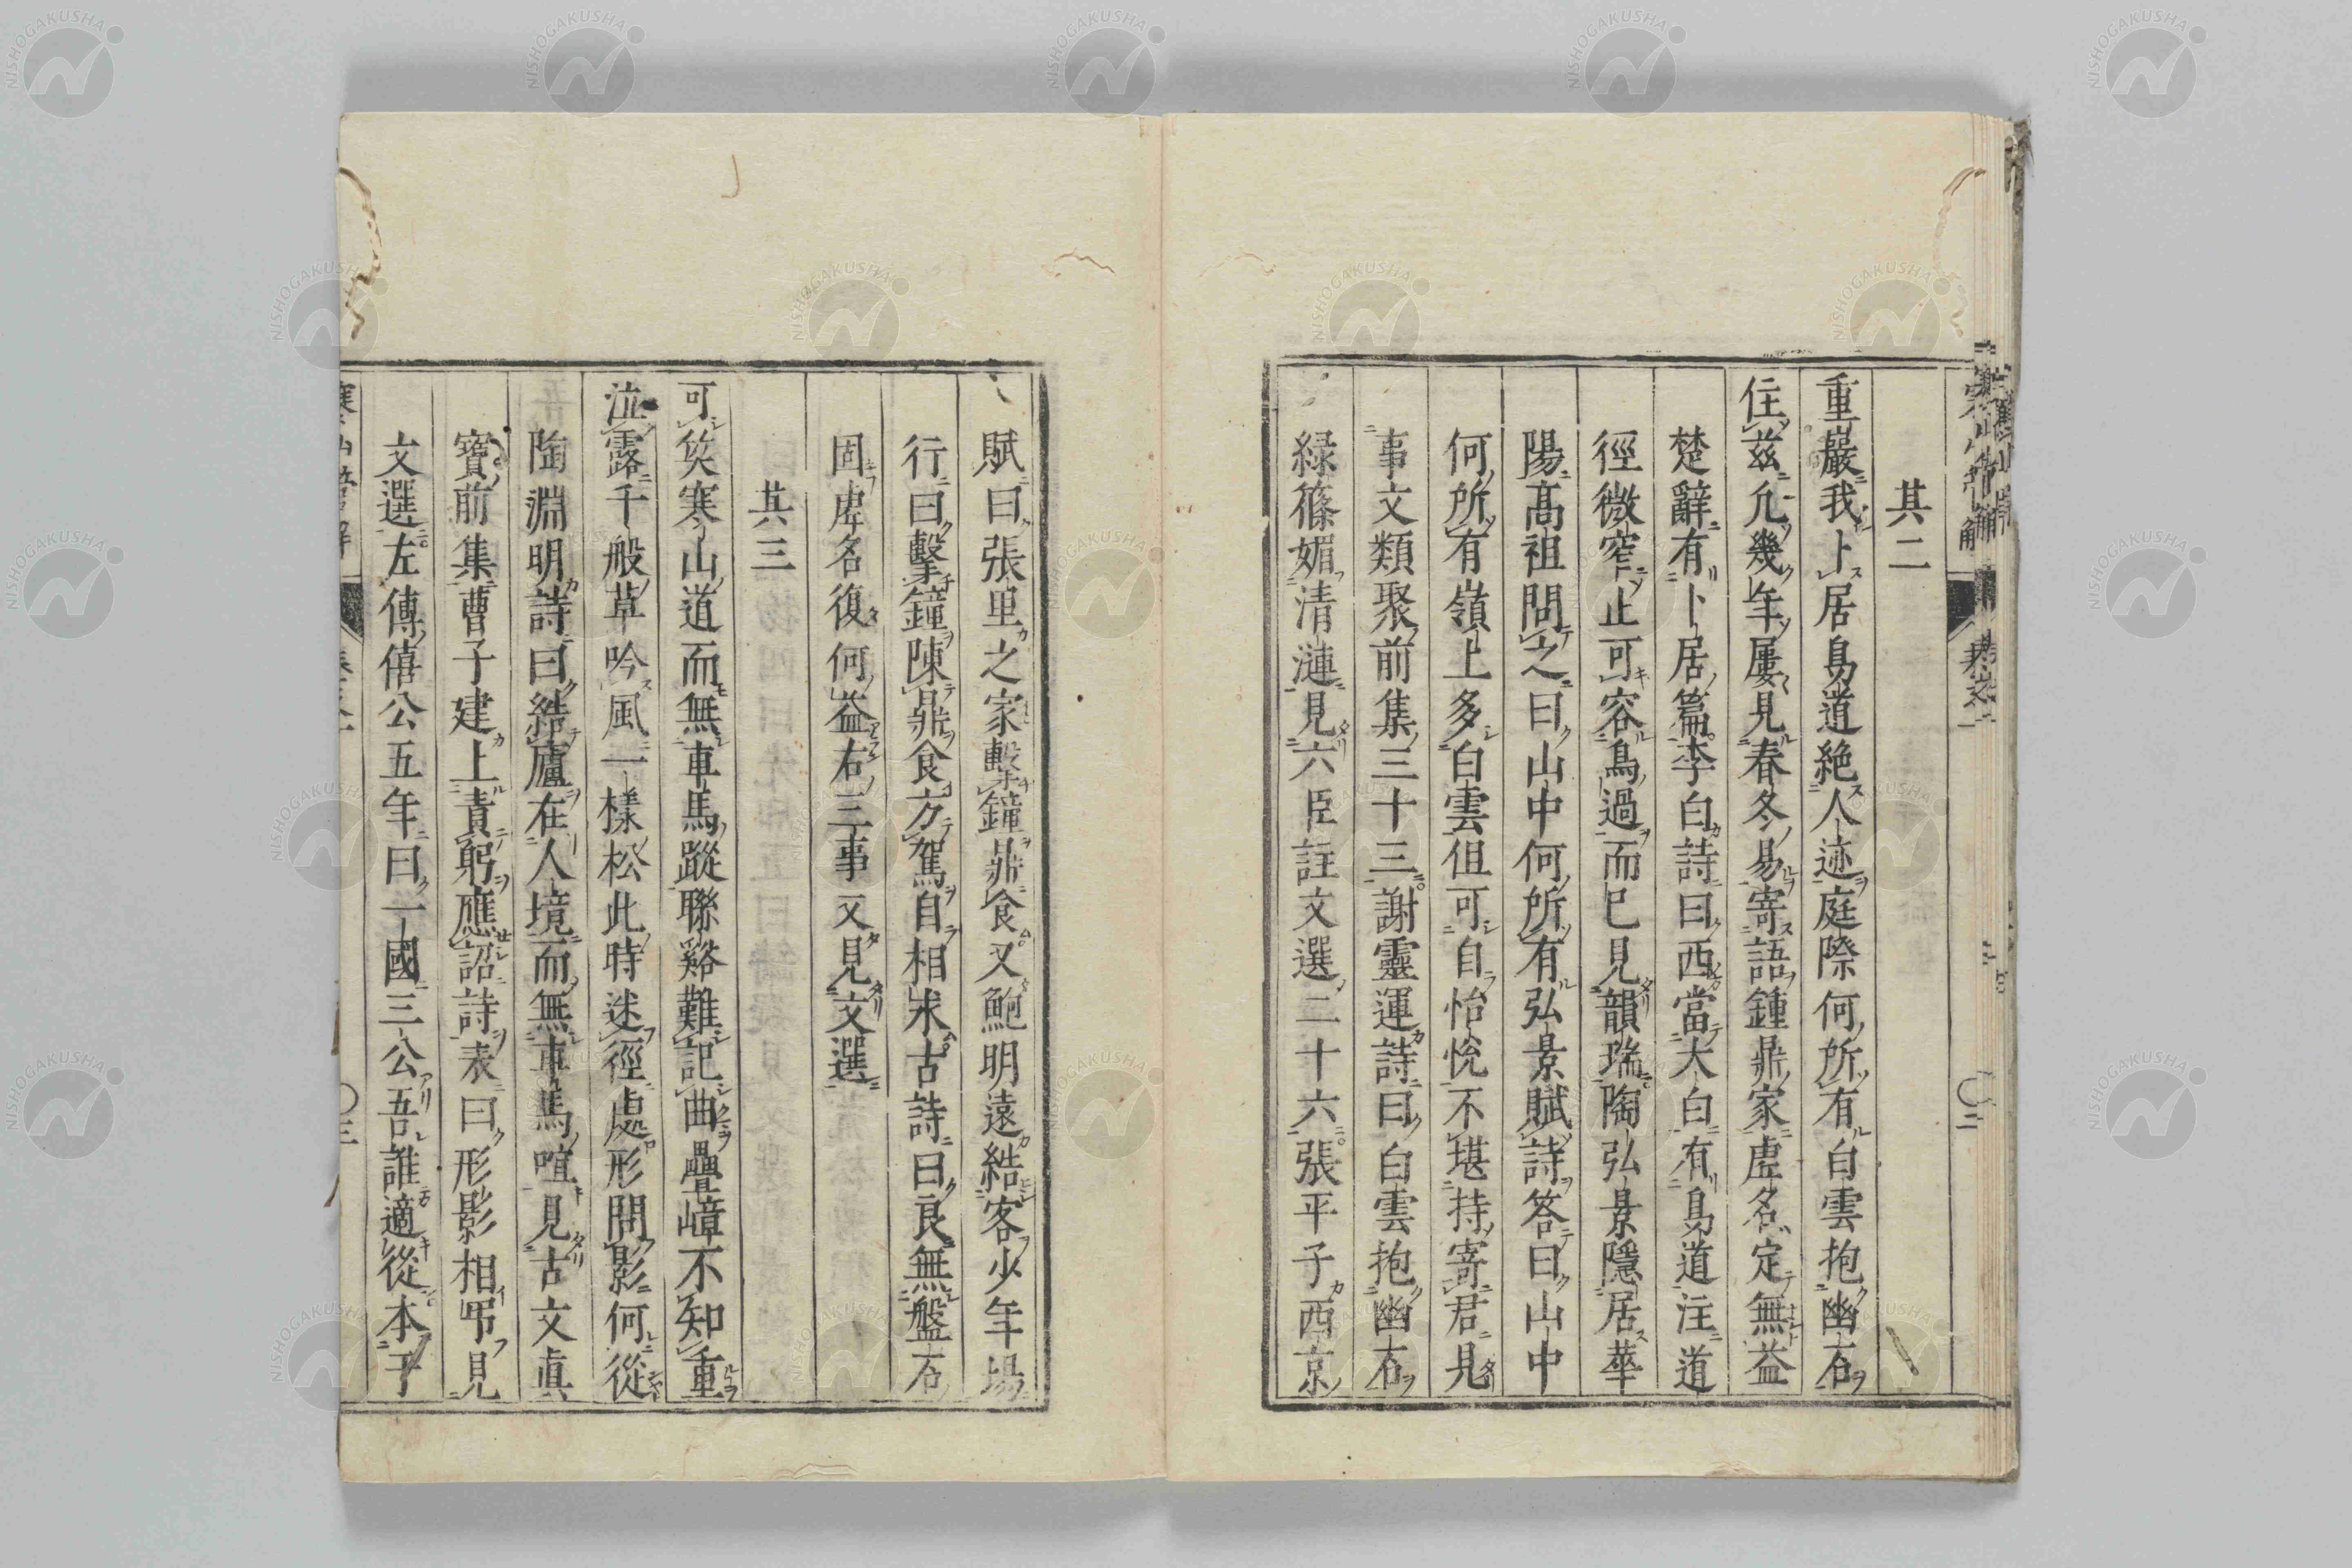 其二
重巖我卜居鳥道絶人迹庭際何所有白雲抱幽石
住茲凡幾年屢見春冬易寄語鍾鼎家虛名定無益
楚辭有卜居篇李白詩曰西當大白有鳥道注道
徑微窄止可容鳥過而已見韻瑞陶弘景隱居華
陽高祖問之曰山中何所有弘景賦詩答曰山中
何所有嶺上多白雲但可自怡悅不堪持寄君見
事文類聚前集三十三謝靈運詩曰白雲抱幽石
緑篠媚清漣見六臣註文選二十六張平子西京
賦曰張里之家擊鐘鼎食又鮑明遠結客少年場
行曰擊鐘陳鼎食方駕自相求古詩曰良無盤石
固虛名復何益右三事又見文選
其三
可笑寒山道而無車馬蹤聯谿難記曲疊嶂不知重
泣露千般草吟風一樣松此時迷徑處形問影何從
陶淵明詩曰結廬在人境而無車馬喧見古文眞
寶前集曹子建上責躬應詔詩表曰形影相弔見
文選左傳僖公五年曰一國三公吾誰適從本子
NISHOGAKUSHA